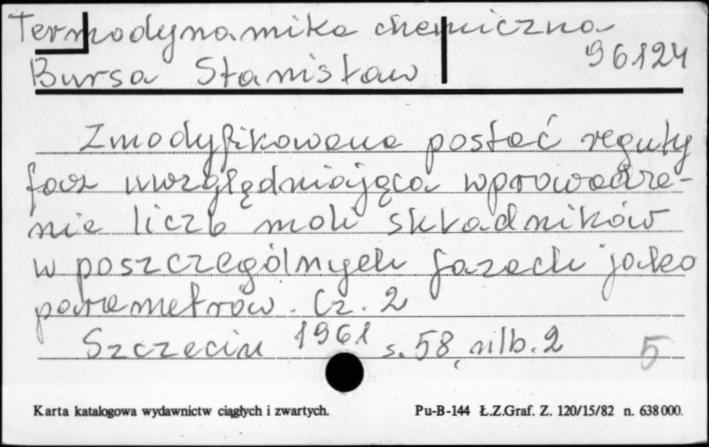 Termodynamika chemiczna
96124
Bursa Stanisław
Zmodyfikowana postać reguły
faz uwzględniająca wprowadze-
nie liczb moli składników
w poszczególnych fazach jako
parametrów. Cz. 2
Szczecin 1961 s. 58, nlb. 2
5
Karta katalogowa wydawnictw ciągłych i zwartych.
Pu-B-144 Ł.Z.Graf. Z. 120/15/82 n. 638000.